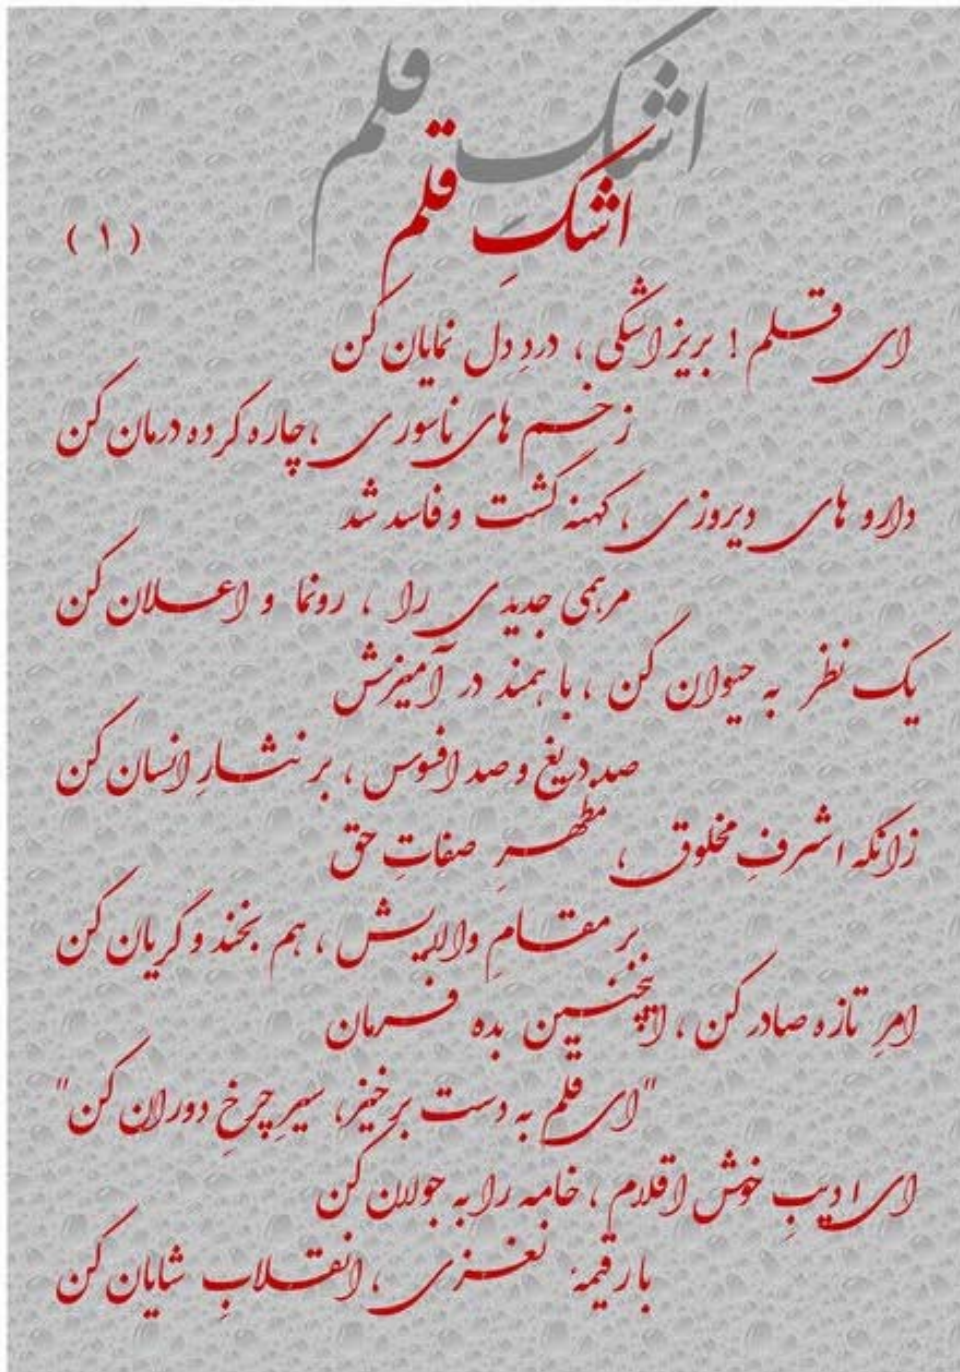 اشک قلم
اشکِ قلم
( ۱ )
ای قلم ! بریز اشکی ، دردِ دل نمایان کن
زخم های ناسوری ، چاره کرده درمان کن
دارو های دیروزی ، کهنه گشت و فاسد شد
مرہمی جدیدی را ، رونما و اعلان کن
یک نظر به حیوان کن ، با همند در آمیزش
صد دریغ و صد افسوس ، بر نثارِ انسان کن
زانکه اشرفِ مخلوق ، مظهرِ صفاتِ حق
بر مقامِ والایش ، هم بخند و گریان کن
امرِ تازه صادر کن ، اینچنین بده فرمان
"ای قلم به دست برخیز، سیرِ چرخِ دوران کن"
ای ادیبِ خوش اقلام ، خامه را به جولان کن
با رقیمهٔ نغزی ، انقلابِ شایان کن